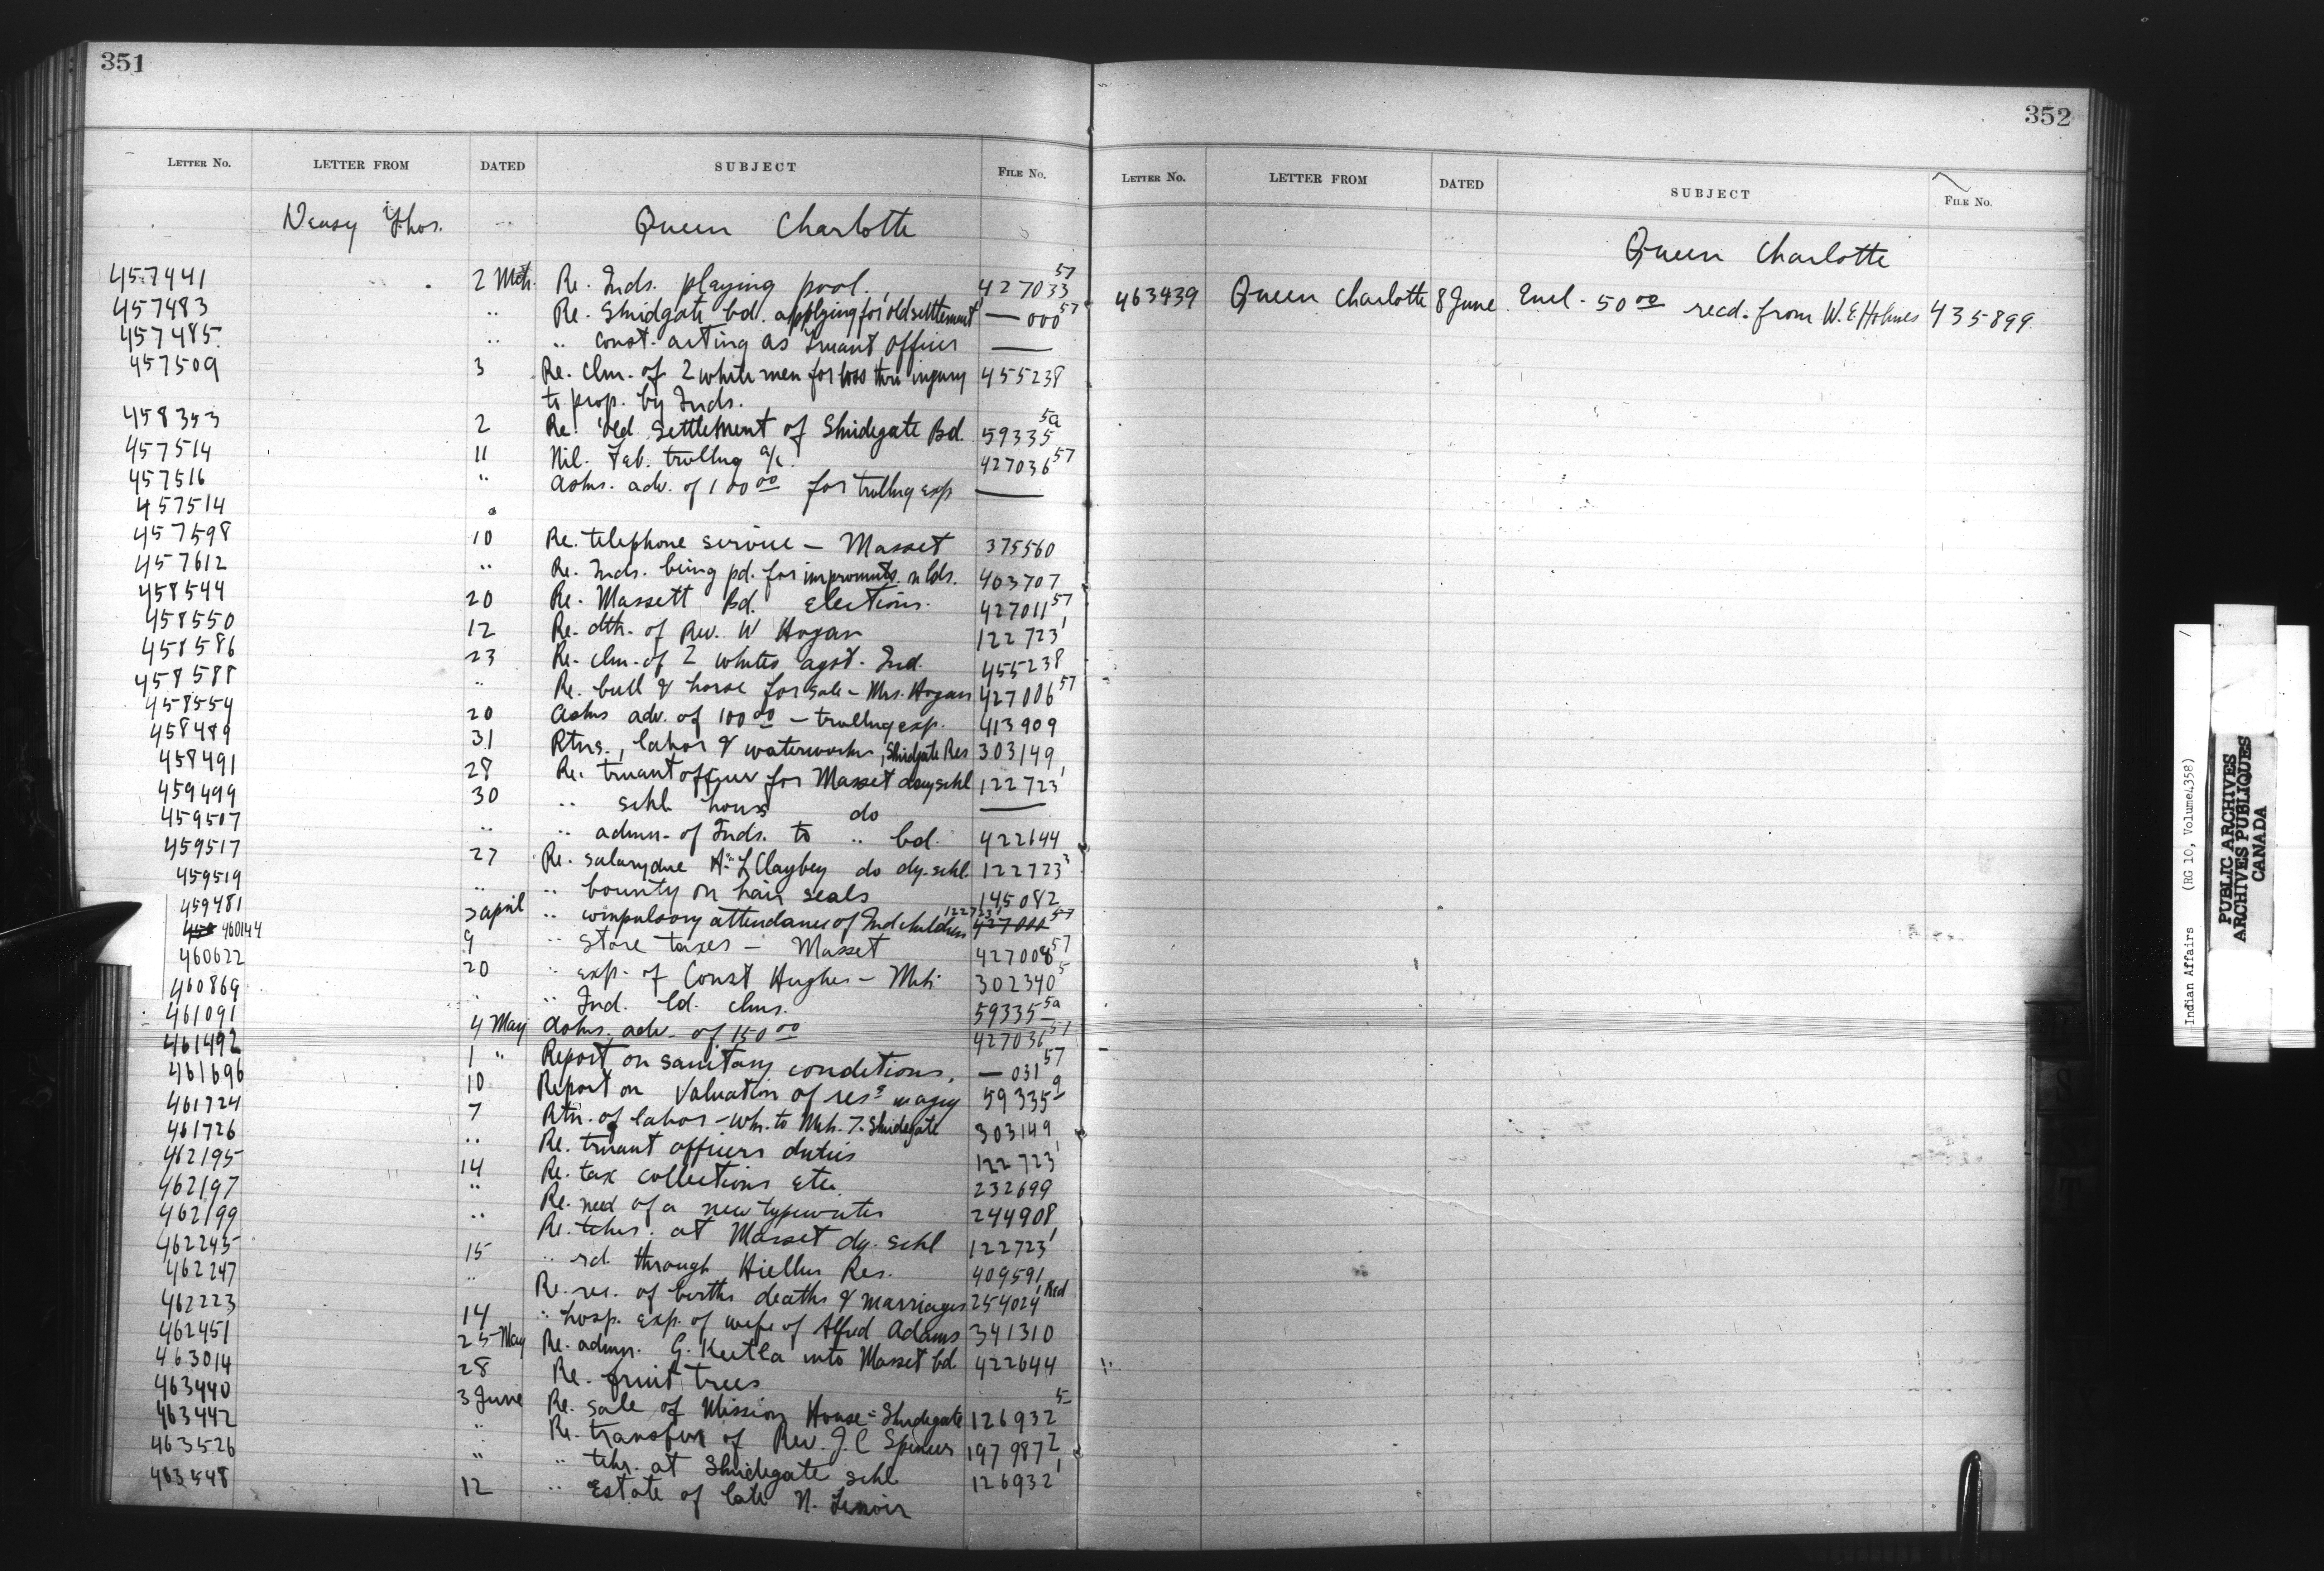 351
LETTER NO. LETTER FROM DATED SUBJECT FILE NO.
Deasy Thos. Queen Charlotte
457441 2 Mch. Re. Inds. playing pool. 427033 57
457483 " Re. Skidgate bd. applying for old settlement — 000 57
457485 " " const. acting as truant officer —
457509 3 Re. clm. of 2 white men for loss thro injury 455238
to prop. by Inds.
458353 2 Re. old settlement of Skidegate Bd. 59335 5a
457514 11 Nil. Feb. trvllng a/c. 427036 57
457516 " Asks. adv. of 100 00 for trvllng exp —
457514 "
457598 10 Re. telephone service — Masset 375560
457612 " Re. Inds. being pd. for improvmts. n lds. 463707
458544 20 Re. Massett Bd. elections. 427011 57
458550 12 Re. dth. of Rev. W Hogan 122723 1
458586 23 Re. clm. of 2 whites agst. Ind. 455238
458588 " Re. bull & horse for sale — Mrs. Hogan 427006 57
458554 20 Asks adv. of 100 00 — trvllng exp. 413909
458489 31 Rtns., labor & waterworks, Skidgate Res 303149
458491 28 Re. truant officer for Masset day schl 122723 1
459499 30 " schl hours do —
459507 " " admn. of Inds. to " bd. 422644
459517 27 Re. salary due A. L Claybey do dy. schl 122723 3
459519 " " bounty on hair seals 145082
459481 3 april " compulsory attendance of Ind children 122723 1 427000 57
458 460144 9 " store taxes — Masset 427008 57
460622 20 " exp. of Const Hughes — Mch 302340 5
460869 " " Ind. ld. clms. 59335 5a
461091 4 May Asks. adv. of 150 00 427036 57
461492 1 " Report on sanitary conditions. — 031 57
461696 10 Report on valuation of res s in agcy 59335 9
461724 7 Rtn. of labor — Whr. to Mch. 7. Skidegate 303149
461726 " Re. truant officers duties 122723 1
462195 14 Re. tax collections etc. 232699
462197 " Re. need of a new typewriter 244908
462199 " Re. tchr. at Masset dy. schl 122723 1
462245 15 " rd. through Hiellen Res. 409591
462247 " Re. rec. of births deaths & marriages 254024 1 Red
462223 14 " hosp. exp. of wife of Alfred Adams 341310
462451 25 May Re. admn. G. Keetla into Masset bd 422644
463014 28 Re. fruit trees
463440 3 June Re. sale of Mission House — Skidegate 126932 5
463442 " Re. transfer of Rev. J. C Spencer 197987 2
463526 " " tchr. at Skidegate schl 126932 1
463548 12 " Estate of late N. Lenoir
352
LETTER NO. LETTER FROM DATED SUBJECT FILE NO.
Queen Charlotte
463439 Queen Charlotte 8 June Encl. 50 00 recd. from W. E Holmes 435899
Indian Affairs (RG 10, Volume 4358)
PUBLIC ARCHIVES
ARCHIVES PUBLIQUES
CANADA